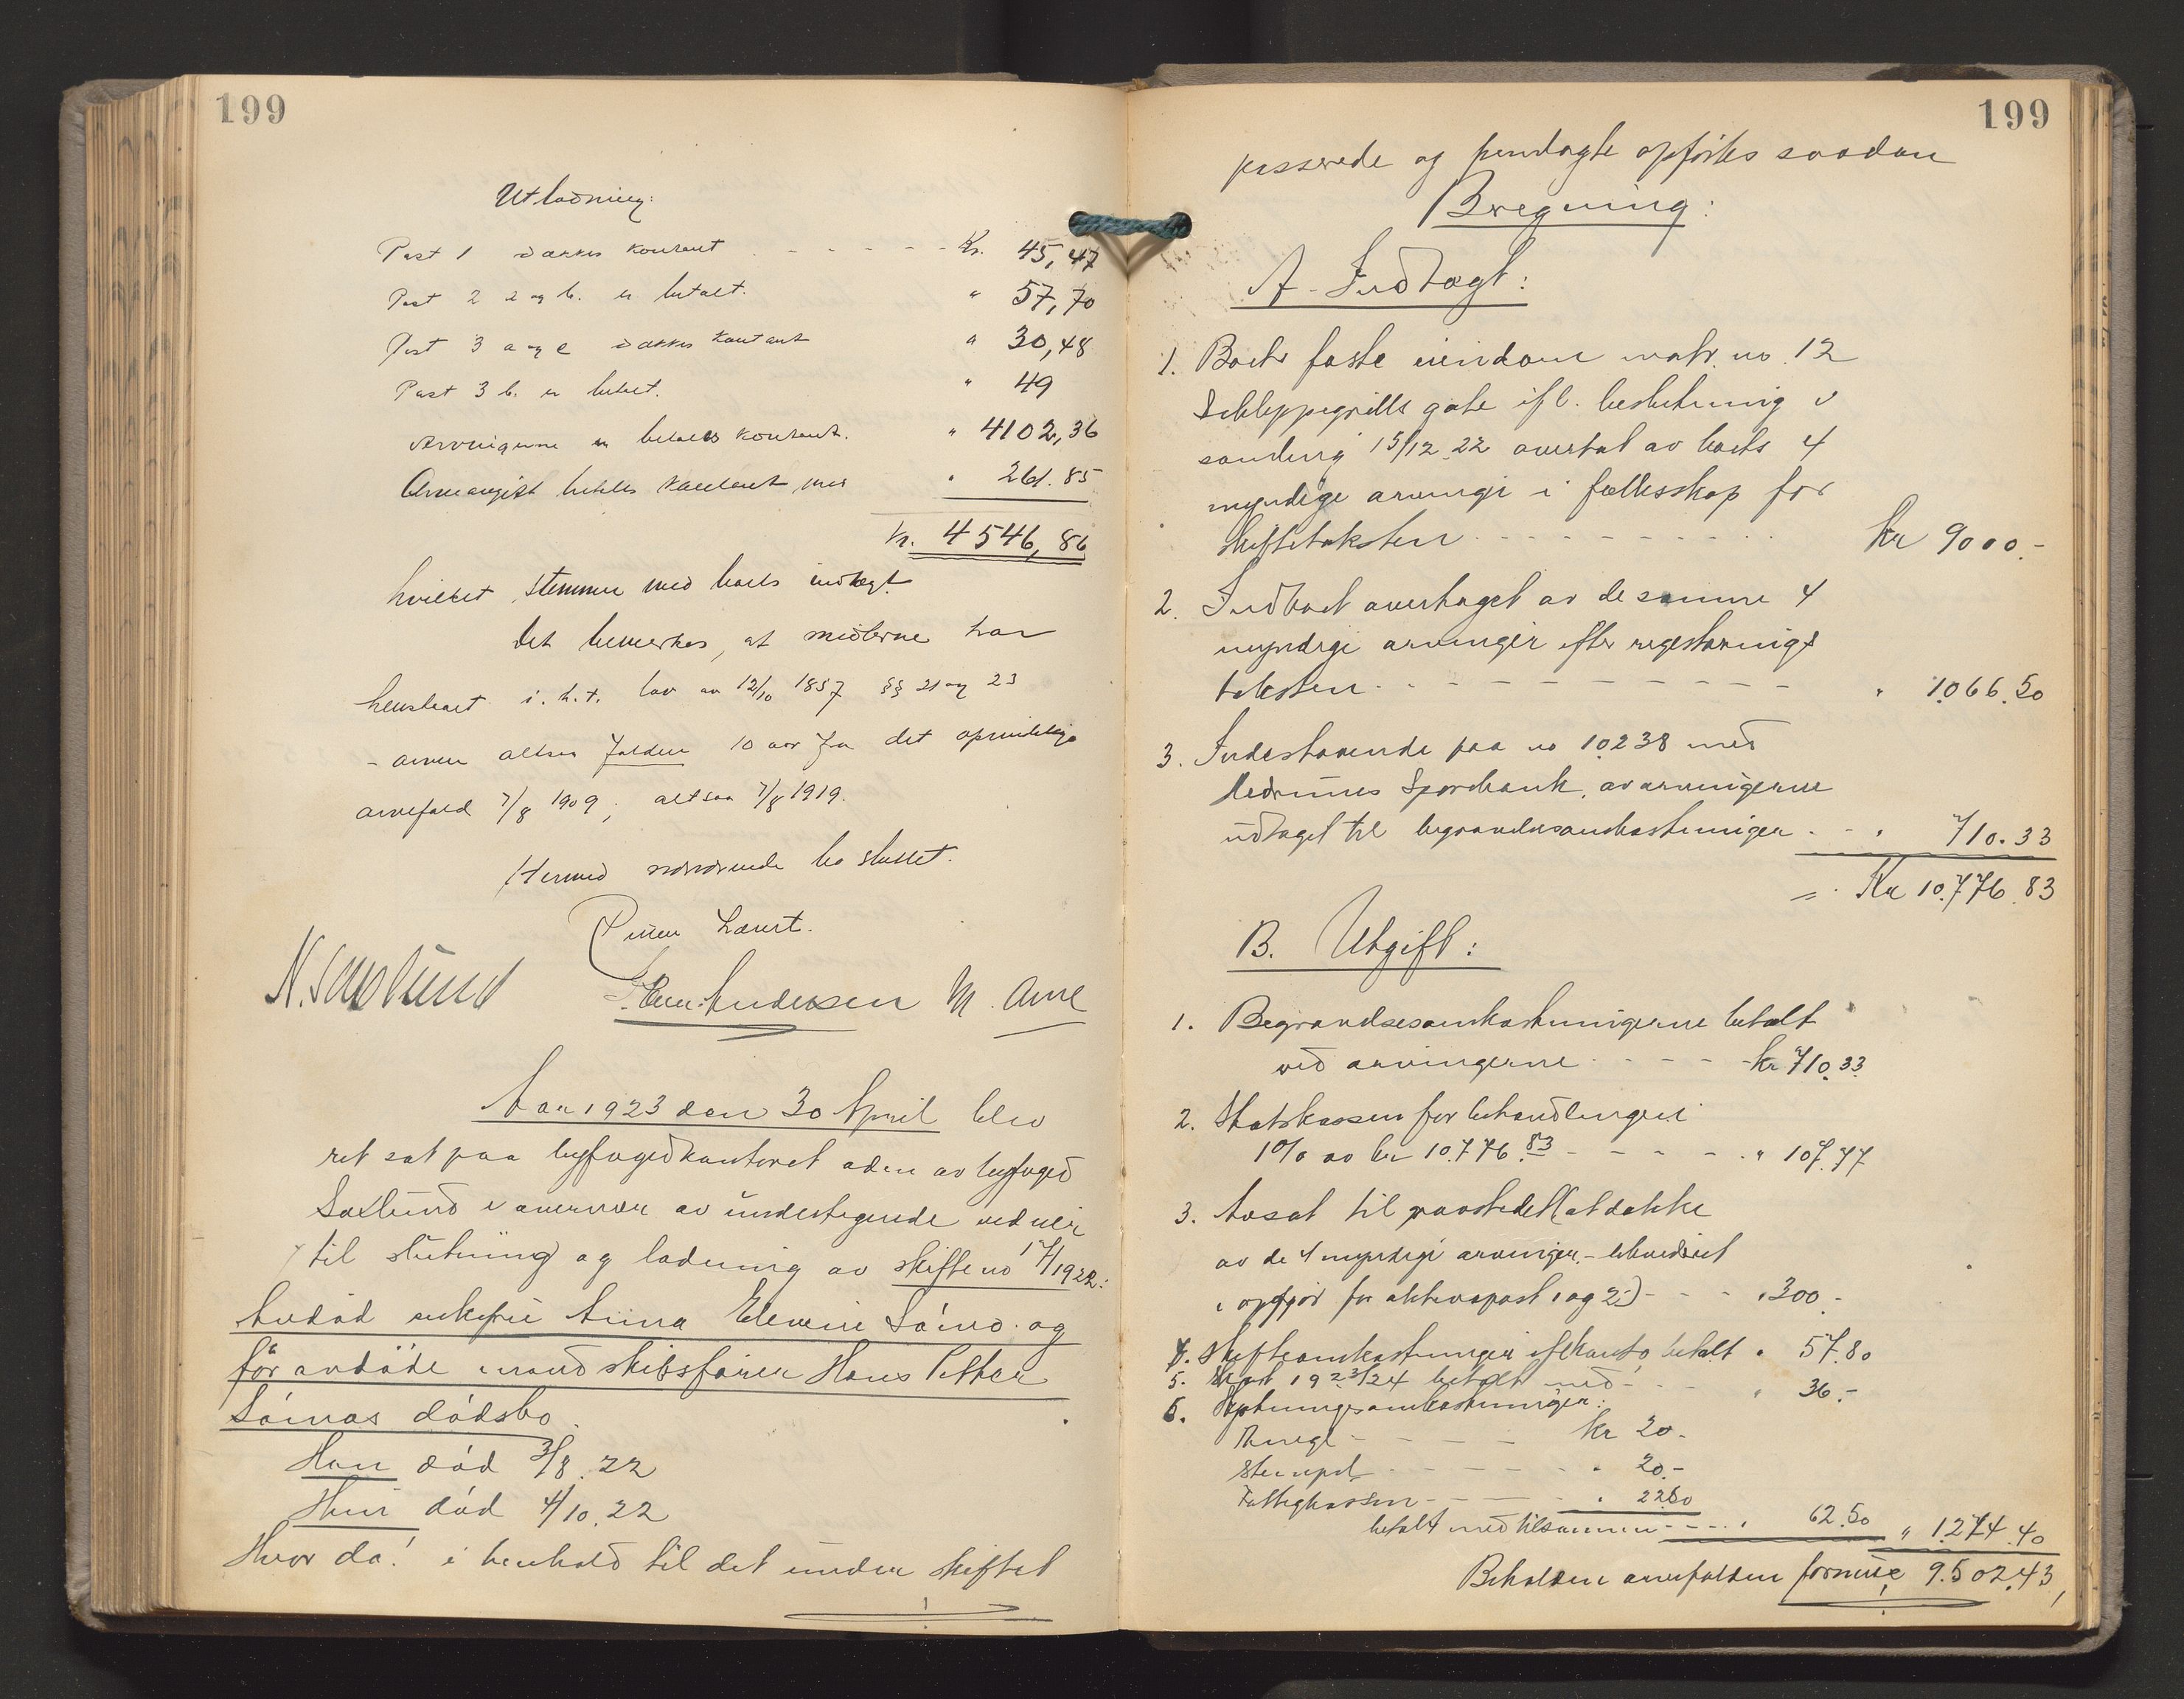 199
Utlodning:
Post 1 dækkes kontant - - - - - Kr. 45,47
Post 2 a og b. er betalt. " 57,70
Post 3 a og c dækkes kontant " 30,48
Post 3 b. er betalt. " 49
Arvingerne er betales kontant. " 4102,36
Arveavgift betales kontant med " 261.85
Kr. 4546,86
hvilket stemmer med boets indtægt.
Det bemerkes, at midlerne har
henstaaet i. h. t. lov av 12/10 1857 §§ 21 og 23
- arven altsaa falden 10 aar fra det oprindelige
arvefald 7/8 1909; altsaa 7/8 1919.
Hermed nærværende bo sluttet.
Retten hævet.
N. Saxlund Andersen M. Arne
Aar 1923 den 30 April blev
ret sat paa byfogedkontoret aden av byfoged
Saxlund i overvær av undertegnede vidner
til slutning og lodning av skifte no 17/1922:
Avdød enkefru Anna Elevine Sömo og
før avdöde mand skibsfører Hans Petter
Sömos dødsbo.
Han död 3/8. 22
Hun död 4/10. 22
Hvor da! i henhold til det under skiftet
199
passerede og fremlagte opførtes saadan
Beregning:
A - Indtægt:
1. Boets faste eiendom matr. no. 12
Schleppegrells gate ifl. beslutning i
samling 15/12 22 overtat av boets 4
myndige arvinger i fællesskap for
skiftetaksten - - - - - - - - - - kr 9000.-
2. Indboet overtaget av de samme 4
myndige arvinger efter registrerings
taksten - - - - - - - - - - " 1.066.50
3. Indestaaende paa no 10238 med
Sparebank, av arvingerne
udtaget til begravelsesomkostninger - - " 710.33
= Kr 10.776.83
B. Utgift:
1. Begravelsesomkostningerne betalt
ved arvingerne - - - - kr 710.33
2. Statskassen for behandlingen
1% av kr 10.776.83 - - - - " 107.77
3. Avsat til gravstedet (at dække
av de 4 myndige arvinger, - likvidert
i opgjør for aktivapost 1 og 2) - - - " 300.-
4. Skifteomkostninger ifl konto betalt " 57.80
5. Skat 1923/24 betalt med - - - " 36.-
6. omkostninger:
Tinegl - - - - - kr 20.-
Stempel - - - - - - " 20.-
Fattigkassen - - - - " 22.50
betalt med tilsammen - - - - " 62.50 " 1.274.40
Beholden arvefalden formue 9.502.43